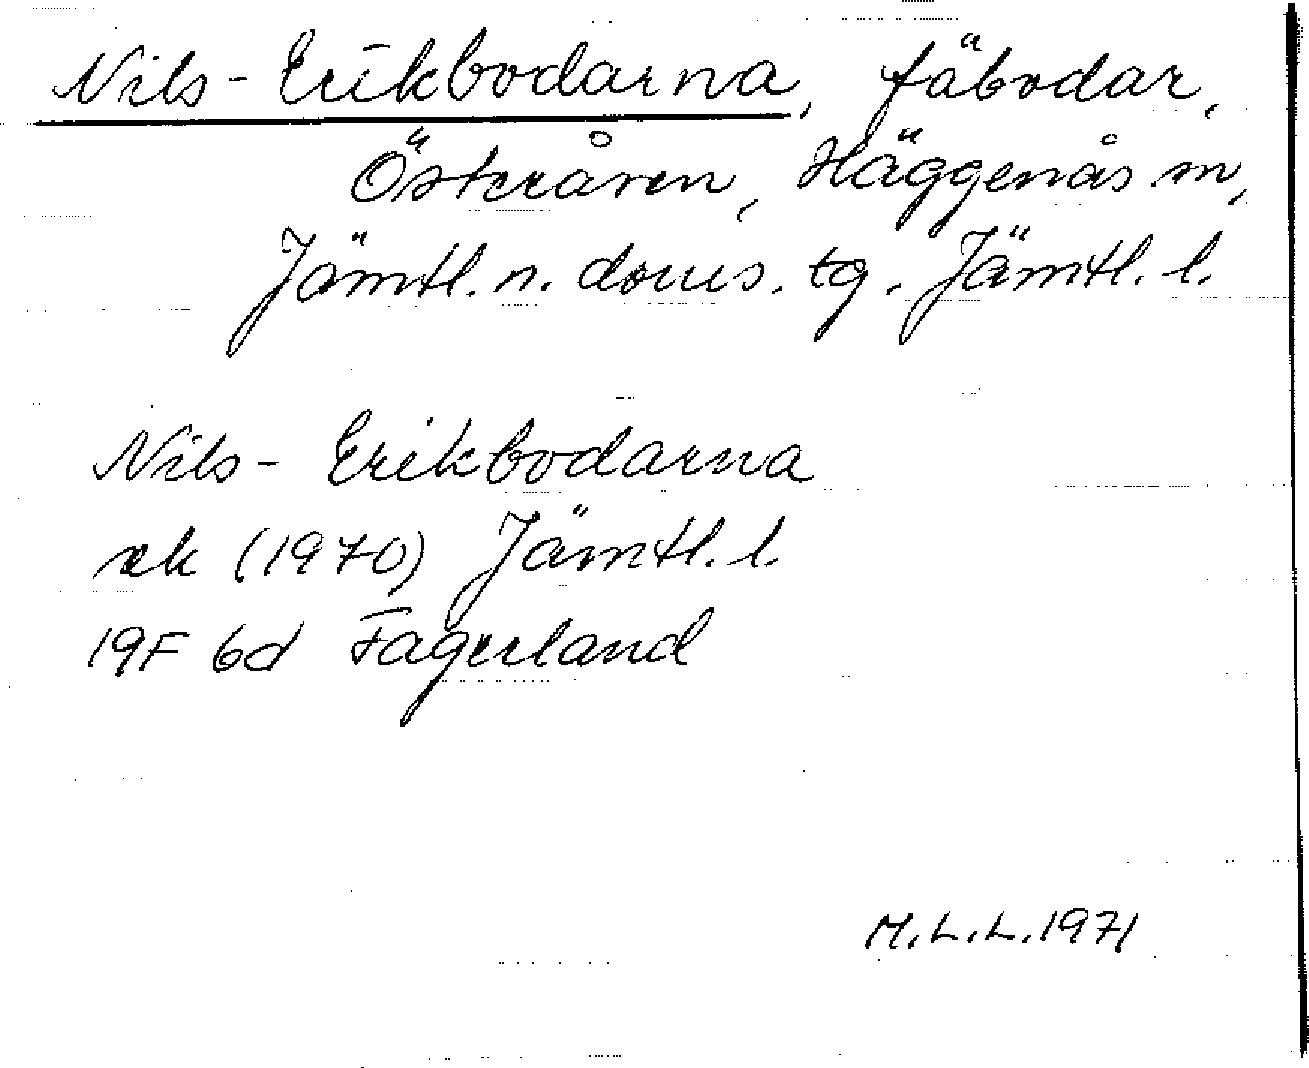 Nils-Erikbodarna, fäbodar,
Österåsen, Häggenås sn,
Jämtl. n. doms. tg. Jämtl. l.
Nils-Erikbodarna
ek (1970) Jämtl. l.
19F 6d Fagerland
M.L.L. 1971